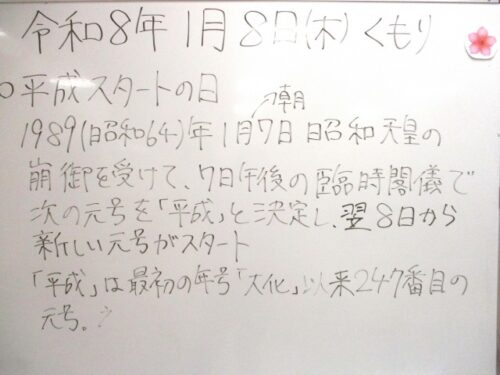 令和8年1月8日(木)くもり
○平成スタートの日
朝
1989(昭和64)年1月7日 昭和天皇の
崩御を受けて、7日午後の臨時閣儀で
次の元号を「平成」と決定し、翌8日から
新しい元号がスタート
「平成」は最初の年号「大化」以来247番目の
元号。